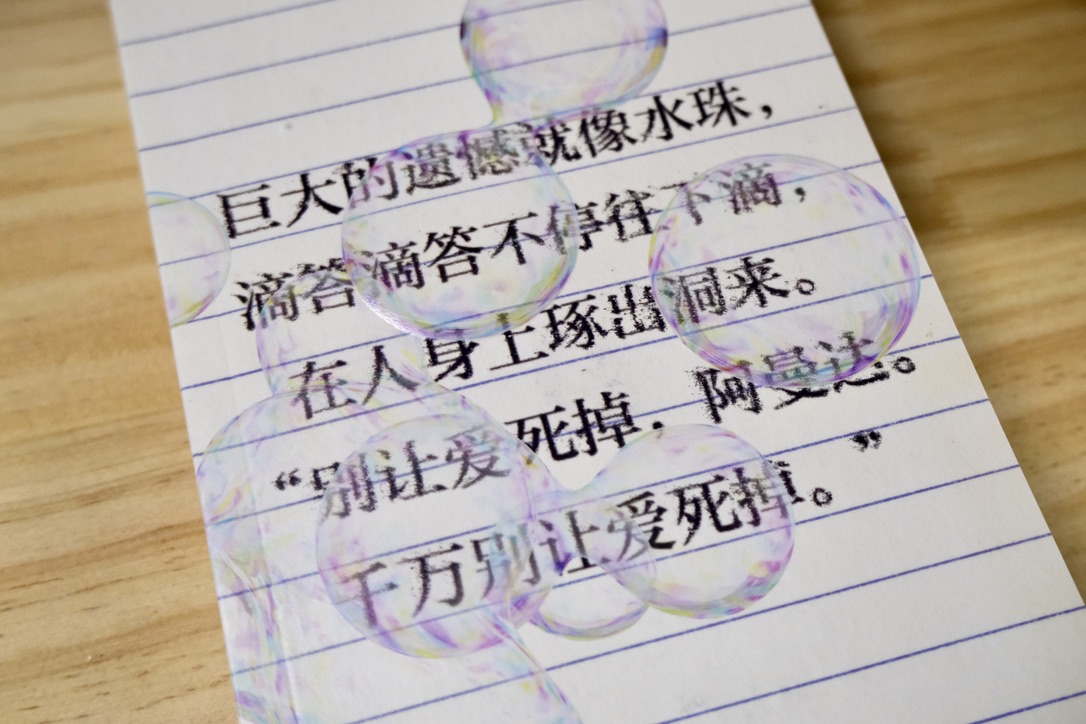 巨大的遗憾就像水珠，
滴答滴答不停往下滴，
在人身上琢出洞来。
“别让爱死掉，阿曼达。
千万别让爱死掉。”